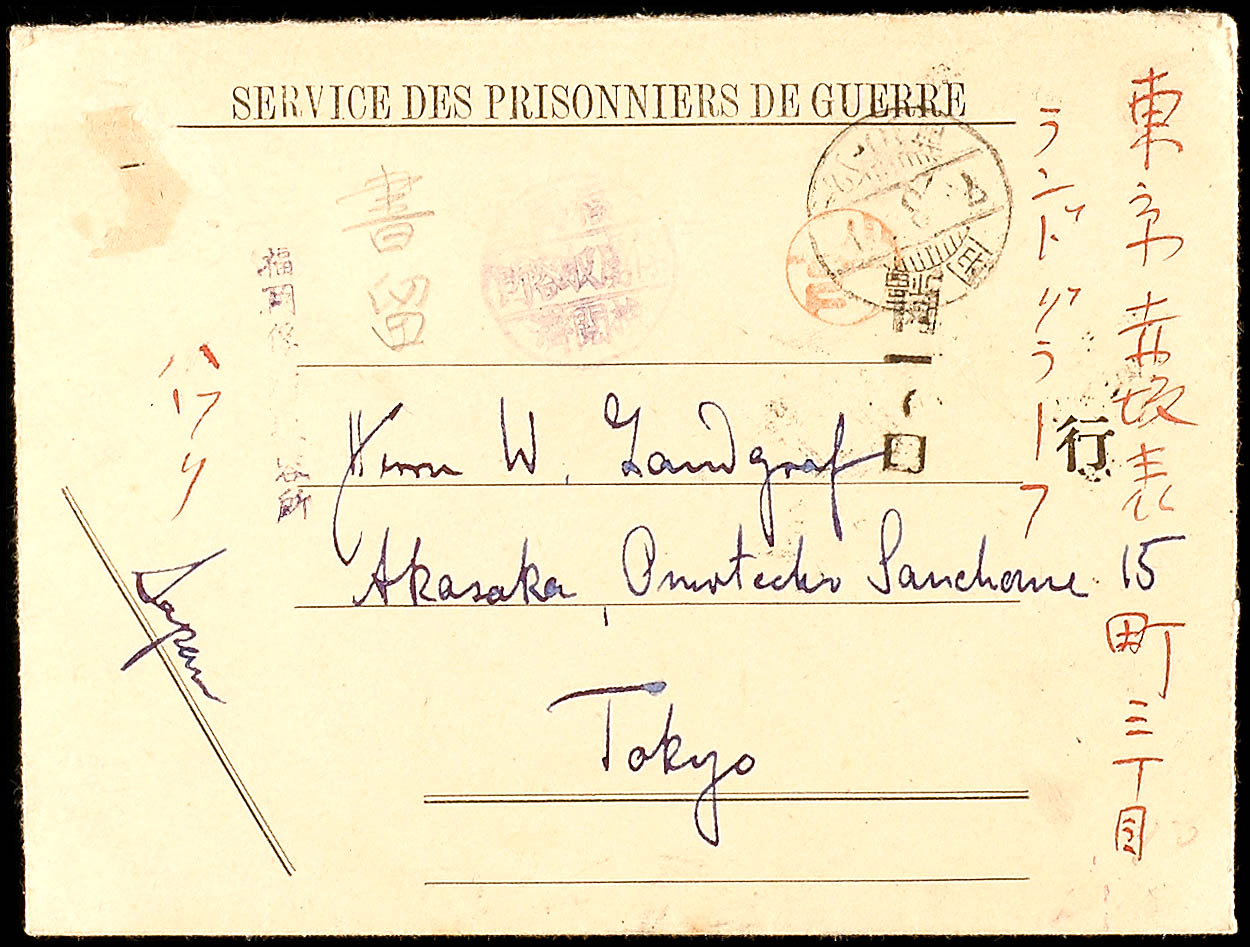 SERVICE DES PRISONNIERS DE GUERRE
東京赤坂表町三丁目
ランドグラーフ
行
書留
福岡俘
所
Herrn W. Landgraf
Akasaka, Omotecho Sanchome 15
Tokyo
Japan